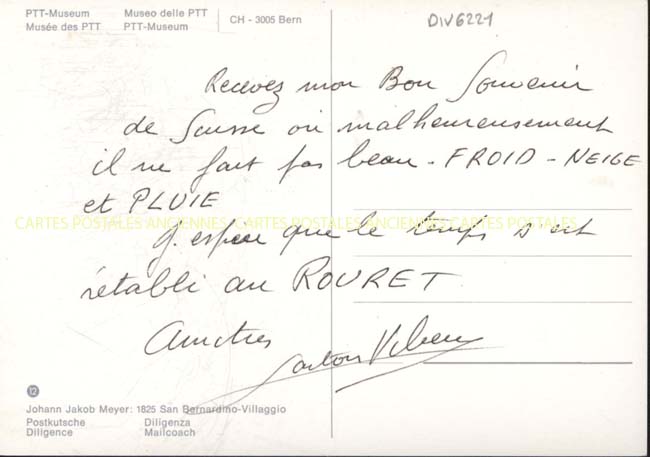 PTT-Museum
Musée des PTT
Museo delle PTT
PTT-Museum
CH - 3005 Bern
DIV6221
Recevez mon Bon Souvenir
de Suisse où malheureusement
il ne fait pas beau - FROID - NEIGE
et PLUIE
CARTES POSTALES ANCIENNES CARTES POSTALES ANCIENNES CARTES POSTALES
J'espère que le temps s'est
rétabli au ROURET
Amitiés
Gaston
12
Johann Jakob Meyer: 1825 San Bernardino-Villaggio
Postkutsche
Diligence
Diligenza
Mailcoach